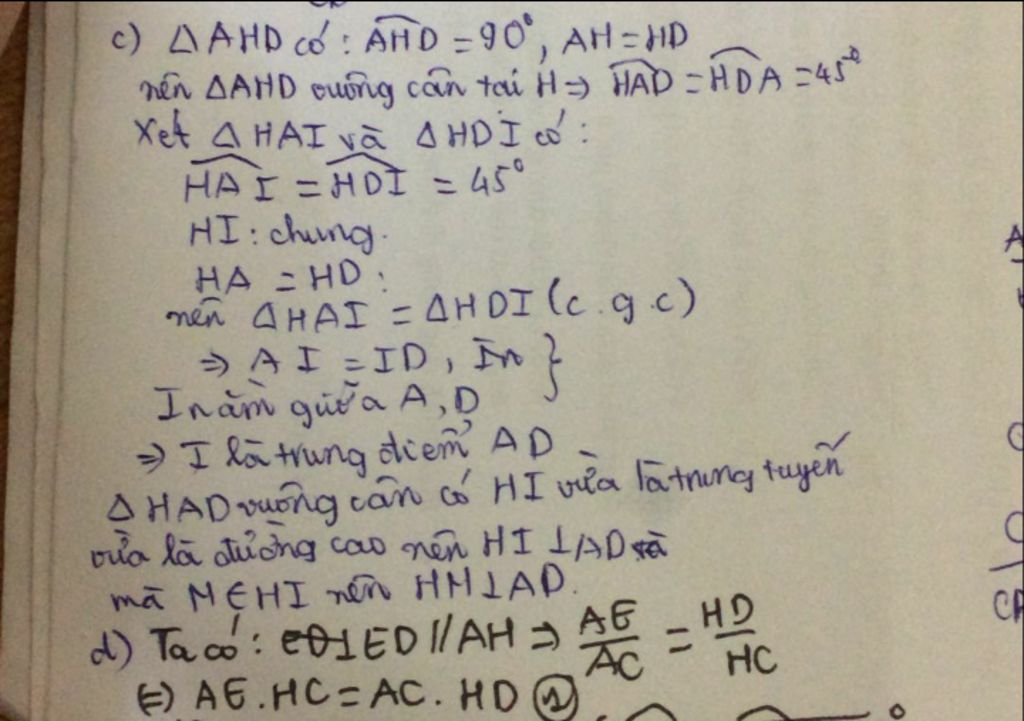 c) △AHD có: ∠AHD = 90°, AH = HD
nên △AHD vuông cân tại H ⇒ ∠HAD = ∠HDA = 45°
Xét △HAI và △HDI có:
∠HAI = ∠HDI = 45°
HI: chung.
HA = HD:
nên △HAI = △HDI (c.g.c)
⇒ AI = ID, In }
I nằm giữa A, D
⇒ I là trung điểm AD
△HAD vuông cân có HI vừa là trung tuyến
vừa là đường cao nên HI ⊥ AD và
mà M ∈ HI nên HM ⊥ AD.
d) Ta có: ED // AH ⇒ AE/AC = HD/HC
⇔ AE.HC = AC.HD